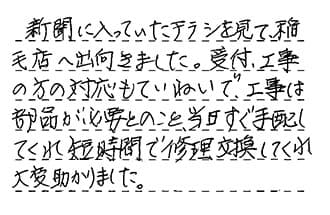 新聞に入っていたチラシを見て、稲
毛店へ出向きました。受付、工事
の方の対応もていねいで、工事は
部品が必要とのこと、当日すぐ手配し
てくれ短時間で修理交換してくれ
大変助かりました。